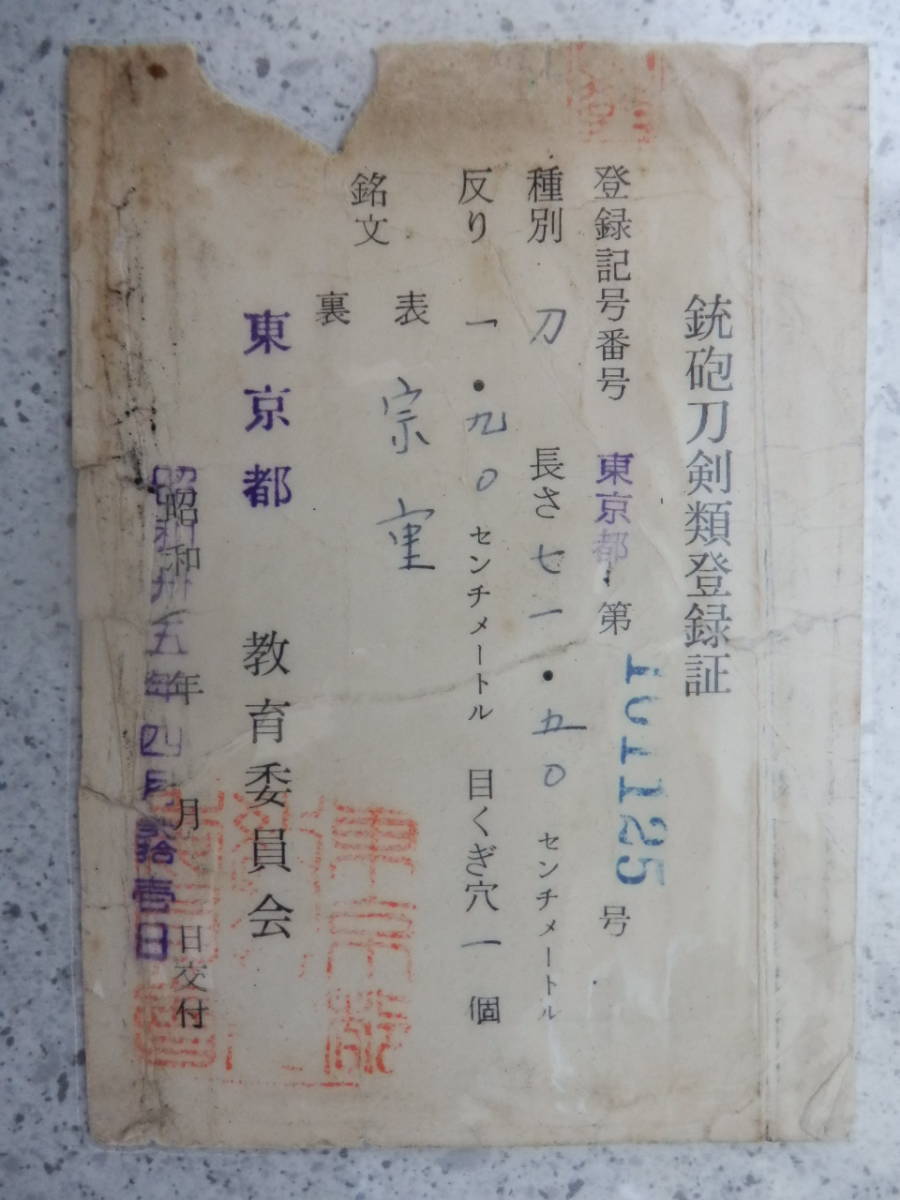 銃砲刀剣類登録証
登録記号番号 東京都 第 101125 号
種別 刀 長さ 七一・五〇 センチメートル
反り 一・九〇 センチメートル 目くぎ穴 一 個
銘文 表 宗重
裏
東京都 教育委員会
昭和 年 月 日交付
昭和卅五年四月貳拾壹日